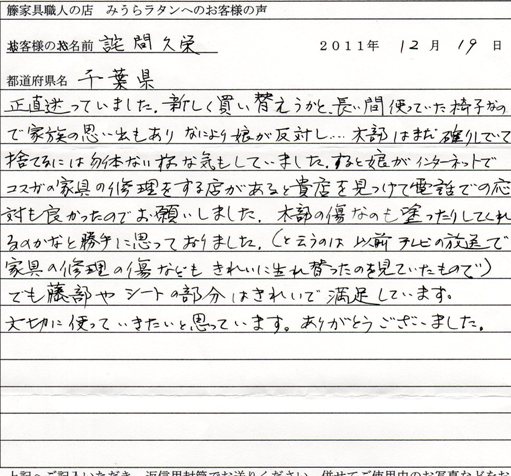 籐家具職人の店　みうらラタンへのお客様の声
お客様のお名前 詫間久栄　2011年 12月 19日
都道府県名 千葉県
正直迷っていました。新しく買い替えうかと、長い間使っていた椅子なの
で家族の思い出もあり なにより娘が反対し… 木部はまだ確りしていて
捨てるには勿体ない様な気もしていました。すると娘がインターネットで
コスガの家具の修理をする店があると貴店を見つけて電話での応
対も良かったのでお願いしました。木部の傷なのも塗ったりしてくれ
るのかなと勝手に思っておりました。(と云うのは以前テレビの放送で
家具の修理の傷なども きれいに生れ替ったのを見ていたもので)
でも藤部やシートの部分はきれいで満足しています。
大切に使っていきたいと思っています。ありがとうございました。